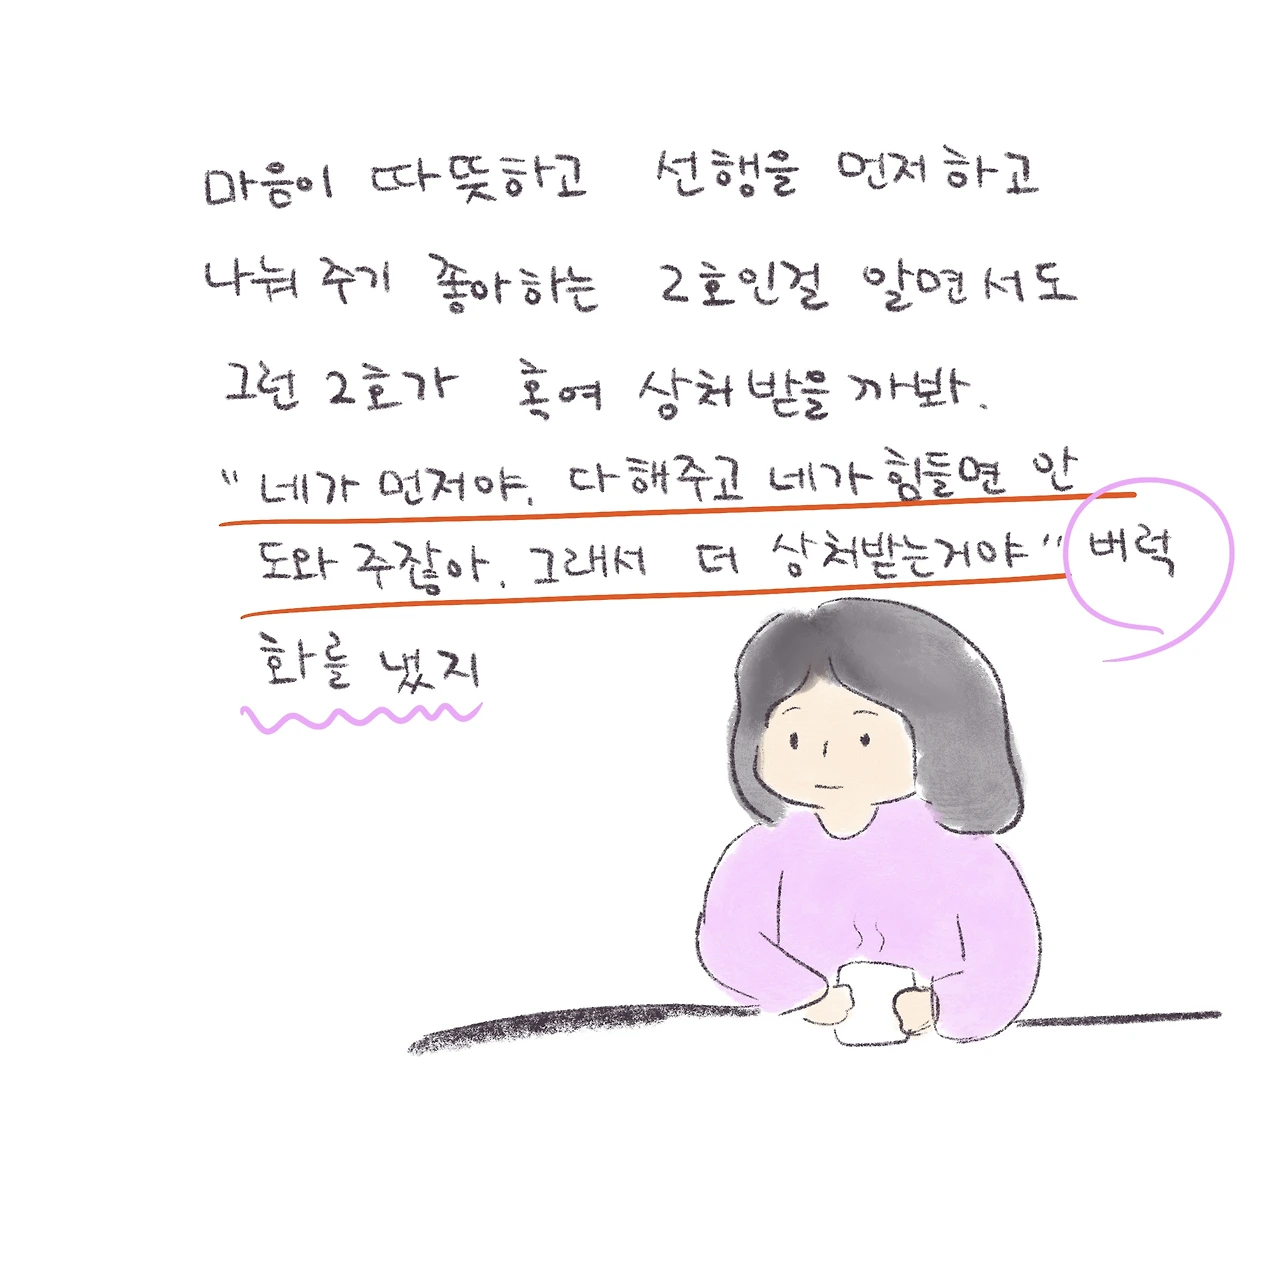 마음이 따뜻하고 선행을 먼저 하고
나눠 주기 좋아하는 2호인걸 알면서도
그런 2호가 혹여 상처 받을 까봐.
"네가 먼저야. 다 해주고 네가 힘들면 안
도와 주잖아. 그래서 더 상처받는거야" 버럭
화를 냈지